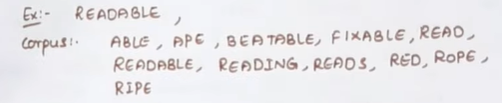 Ex:- READABLE,
Corpus:. ABLE, APE, BEATABLE, FIXABLE, READ,
READABLE, READING, READS, RED, ROPE,
RIPE